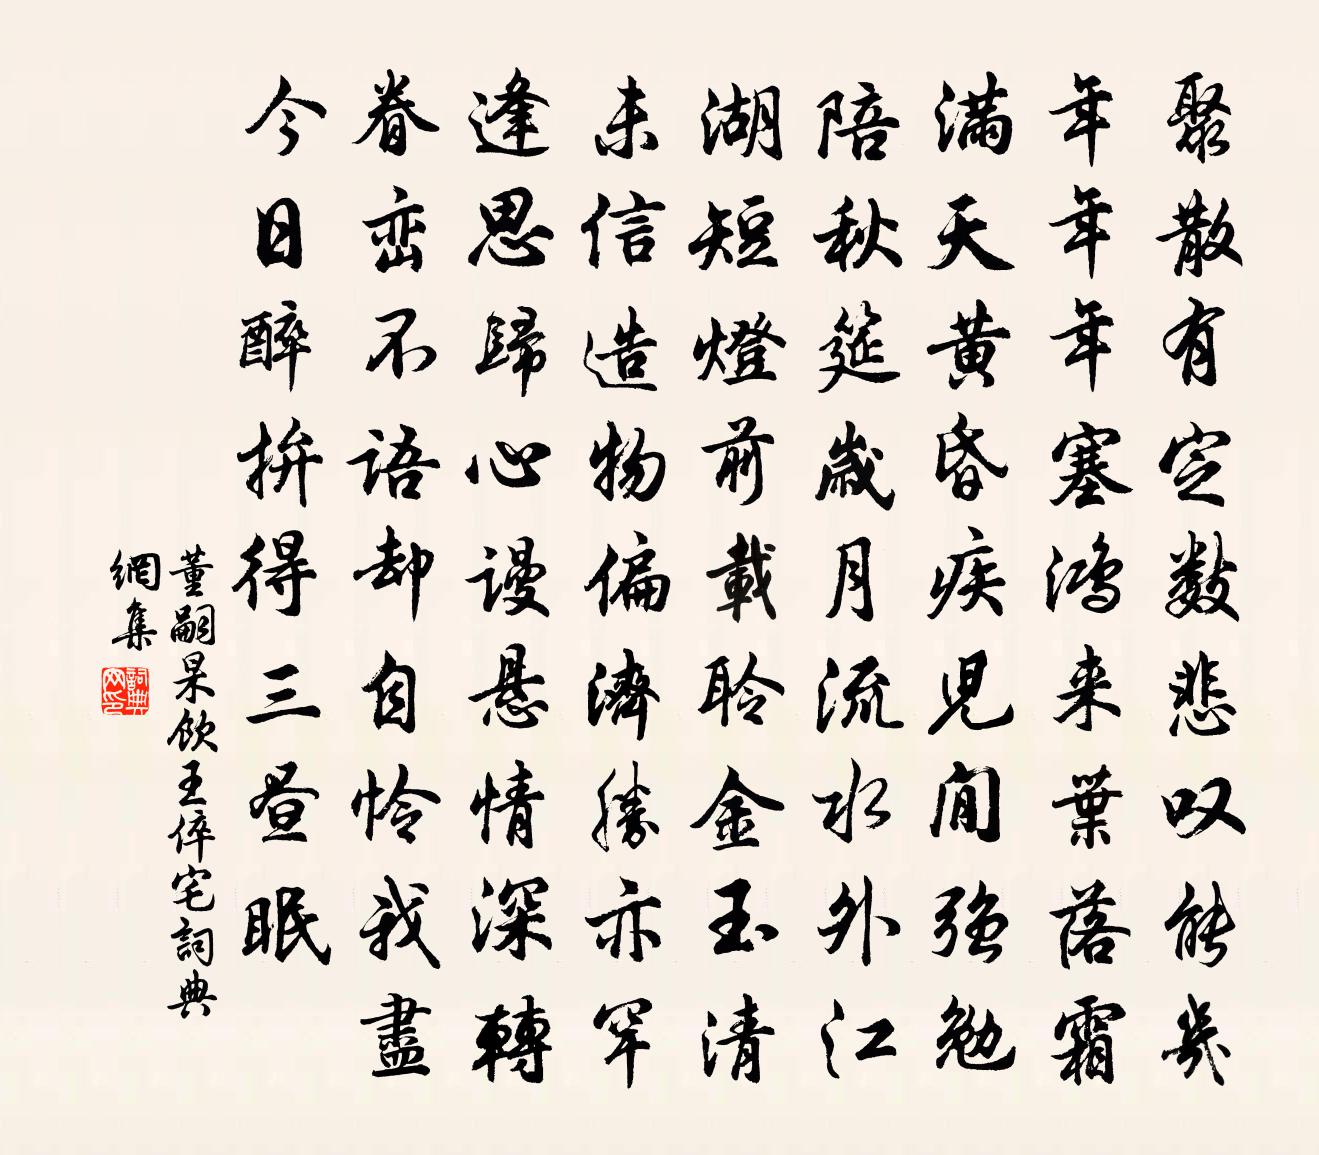 聚散有定數悲叹能幾
年年年塞鴻来葉落霜
满天黄昏疾児閒強勉
陪秋筵歳月流水外江
湖短燈前載聆金玉清
未信造物偏濟勝亦罕
逢思歸心謾悬情深轉
眷峦不語却自怜我盡
今日醉拚得三昼眠
董嗣杲飲王倅宅詞典
網集
詞典网印